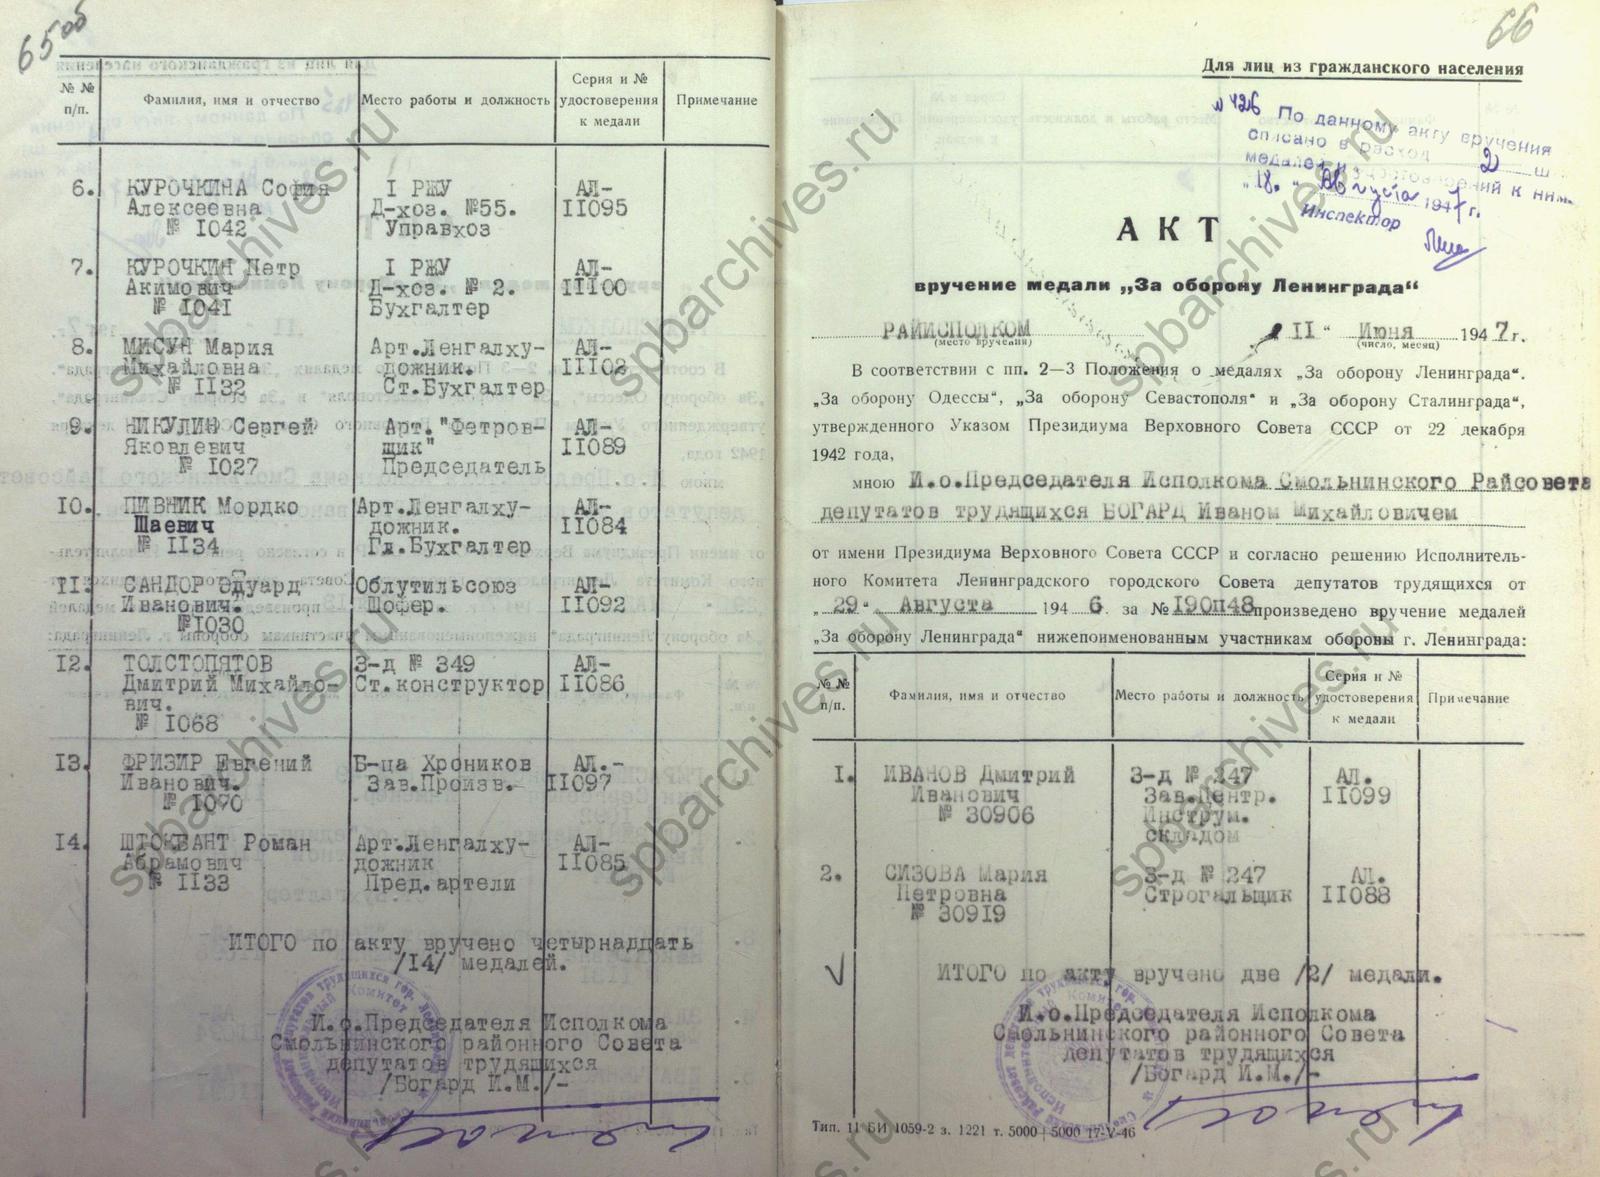 65об
№ №
п/п.
Фамилия, имя и отчество
Место работы и должность
Серия и №
удостоверения
к медали
Примечание
6. КУРОЧКИНА София I РЖУ АЛ-
Алексеевна Д-хоз. №55. II095
№ I042 Управхоз
7. КУРОЧКИН Петр I РЖУ АЛ-
Акимович Д-хоз. № 2. III00
№ I04I Бухгалтер
8. МИСУН Мария Арт.Ленгалху- АЛ-
Михайловна дожник. III02
№ II32 Ст.Бухгалтер
9. НИКУЛИН Сергей Арт."Фетров- АЛ-
Яковлевич щик" II089
№ I027 Председатель
I0. ПИВНИК Мордко Арт.Ленгалху- АЛ-
Шаевич дожник. II084
№ II34 Гл.Бухгалтер
II. САНДОР Эдуард Облутильсоюз АЛ-
Иванович. Шофер. II092
№I030
I2. ТОЛСТОПЯТОВ З-д № 349 АЛ-
Дмитрий Михайло- Ст.конструктор II086
вич.
№ I068
I3. ФРИЗИР Евгений Б-ца Хроников АЛ.-
Иванович. Зав.Произв. II097
№ I070
I4. ШТОКБАНТ Роман Арт.Ленгалху- АЛ-
Абрамович дожник II085
№ II33 Пред.артели
ИТОГО по акту вручено четырнадцать
/I4/ медалей.
И.о.Председателя Исполкома
Смольнинского районного Совета
депутатов трудящихся
/Богард И.М./-
66
Для лиц из гражданского населения
№ 426 По данному акту вручения
списано в расход 2 ш
медалей и удостоверений к ним.
"18." Августа 1947 г.
Инспектор
АКТ
вручение медали „За оборону Ленинграда“
РАЙИСПОЛКОМ II" Июня 1947г.
(место вручения) (число, месяц)
В соответствии с пп. 2—3 Положения о медалях „За оборону Ленинграда“.
„За оборону Одессы“, „За оборону Севастополя“ и „За оборону Сталинграда“,
утвержденного Указом Президиума Верховного Совета СССР от 22 декабря
1942 года,
мною И.о.Председателя Исполкома Смольнинского Райсовета
депутатов трудящихся БОГАРД Иваном Михайловичем
от имени Президиума Верховного Совета СССР и согласно решению Исполнитель-
ного Комитета Ленинградского городского Совета депутатов трудящихся от
„29" Августа 1946. за №I90п48произведено вручение медалей
„За оборону Ленинграда“ нижепоименованным участникам обороны г. Ленинграда:
№ №
п/п.
Фамилия, имя и отчество
Место работы и должность
Серия и №
удостоверения
к медали
Примечание
I. ИВАНОВ Дмитрий З-д № 247 АЛ.
Иванович Зав.Центр. II099
№ 30906 Инструм.
складом
2. СИЗОВА Мария З-д № 247 АЛ.
Петровна Строгальщик II088
№ 309I9
ИТОГО по акту вручено две /2/ медали.
И.о.Председателя Исполкома
Смольнинского районного Совета
депутатов трудящихся
/Богард И.М./-
Тип. 11 БИ 1059-2 з. 1221 т. 5000+5000 17-V-46
spbarchives.ru